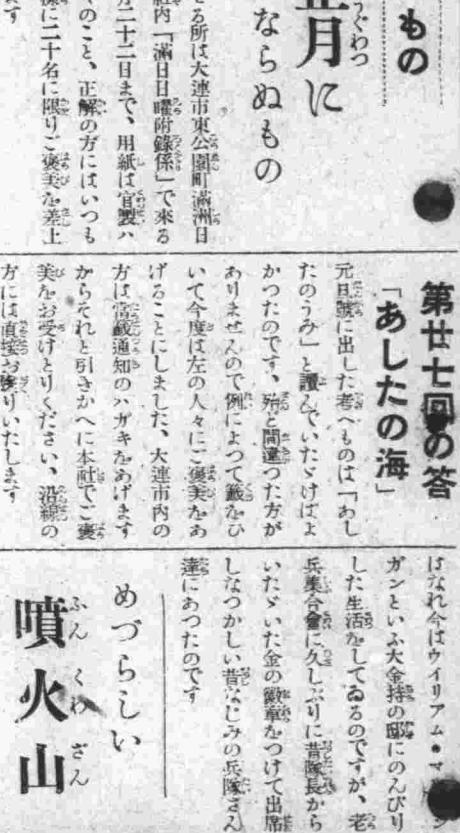 もの
正月に
ならぬもの
せる所は大連市東公園町滿洲日
社内「滿日日曜附錄係」で來る
月二十二日まで、用紙は官製ハ
のこと、正解の方にはいつも
樣に二十名に限りご褒美を差上
ます
第廿七回の答
「あしたの海」
元旦號に出した考へものは「あし
たのうみ」と讀んでいたゞけばよ
かつたのです、殆と間違つた方が
ありませんので例によつて籤をひ
いて今度は左の人々にご褒美をあ
げることにしました、大連市内の
方は當籤通知のハガキをあげます
からそれと引きかへに本社でご褒
美をお受けとりください、沿線の
方には直接お送りいたします
はなれ今はウイリアム・マ
ガンといふ大金持の邸にのんびり
した生活をしてゐるのですが、老
兵集合會に久しぶりに昔隊長から
いたゞいた金の徽章をつけて出席
しなつかしい昔なじみの兵隊さん
達にあつたのです
めづらしい
噴火山